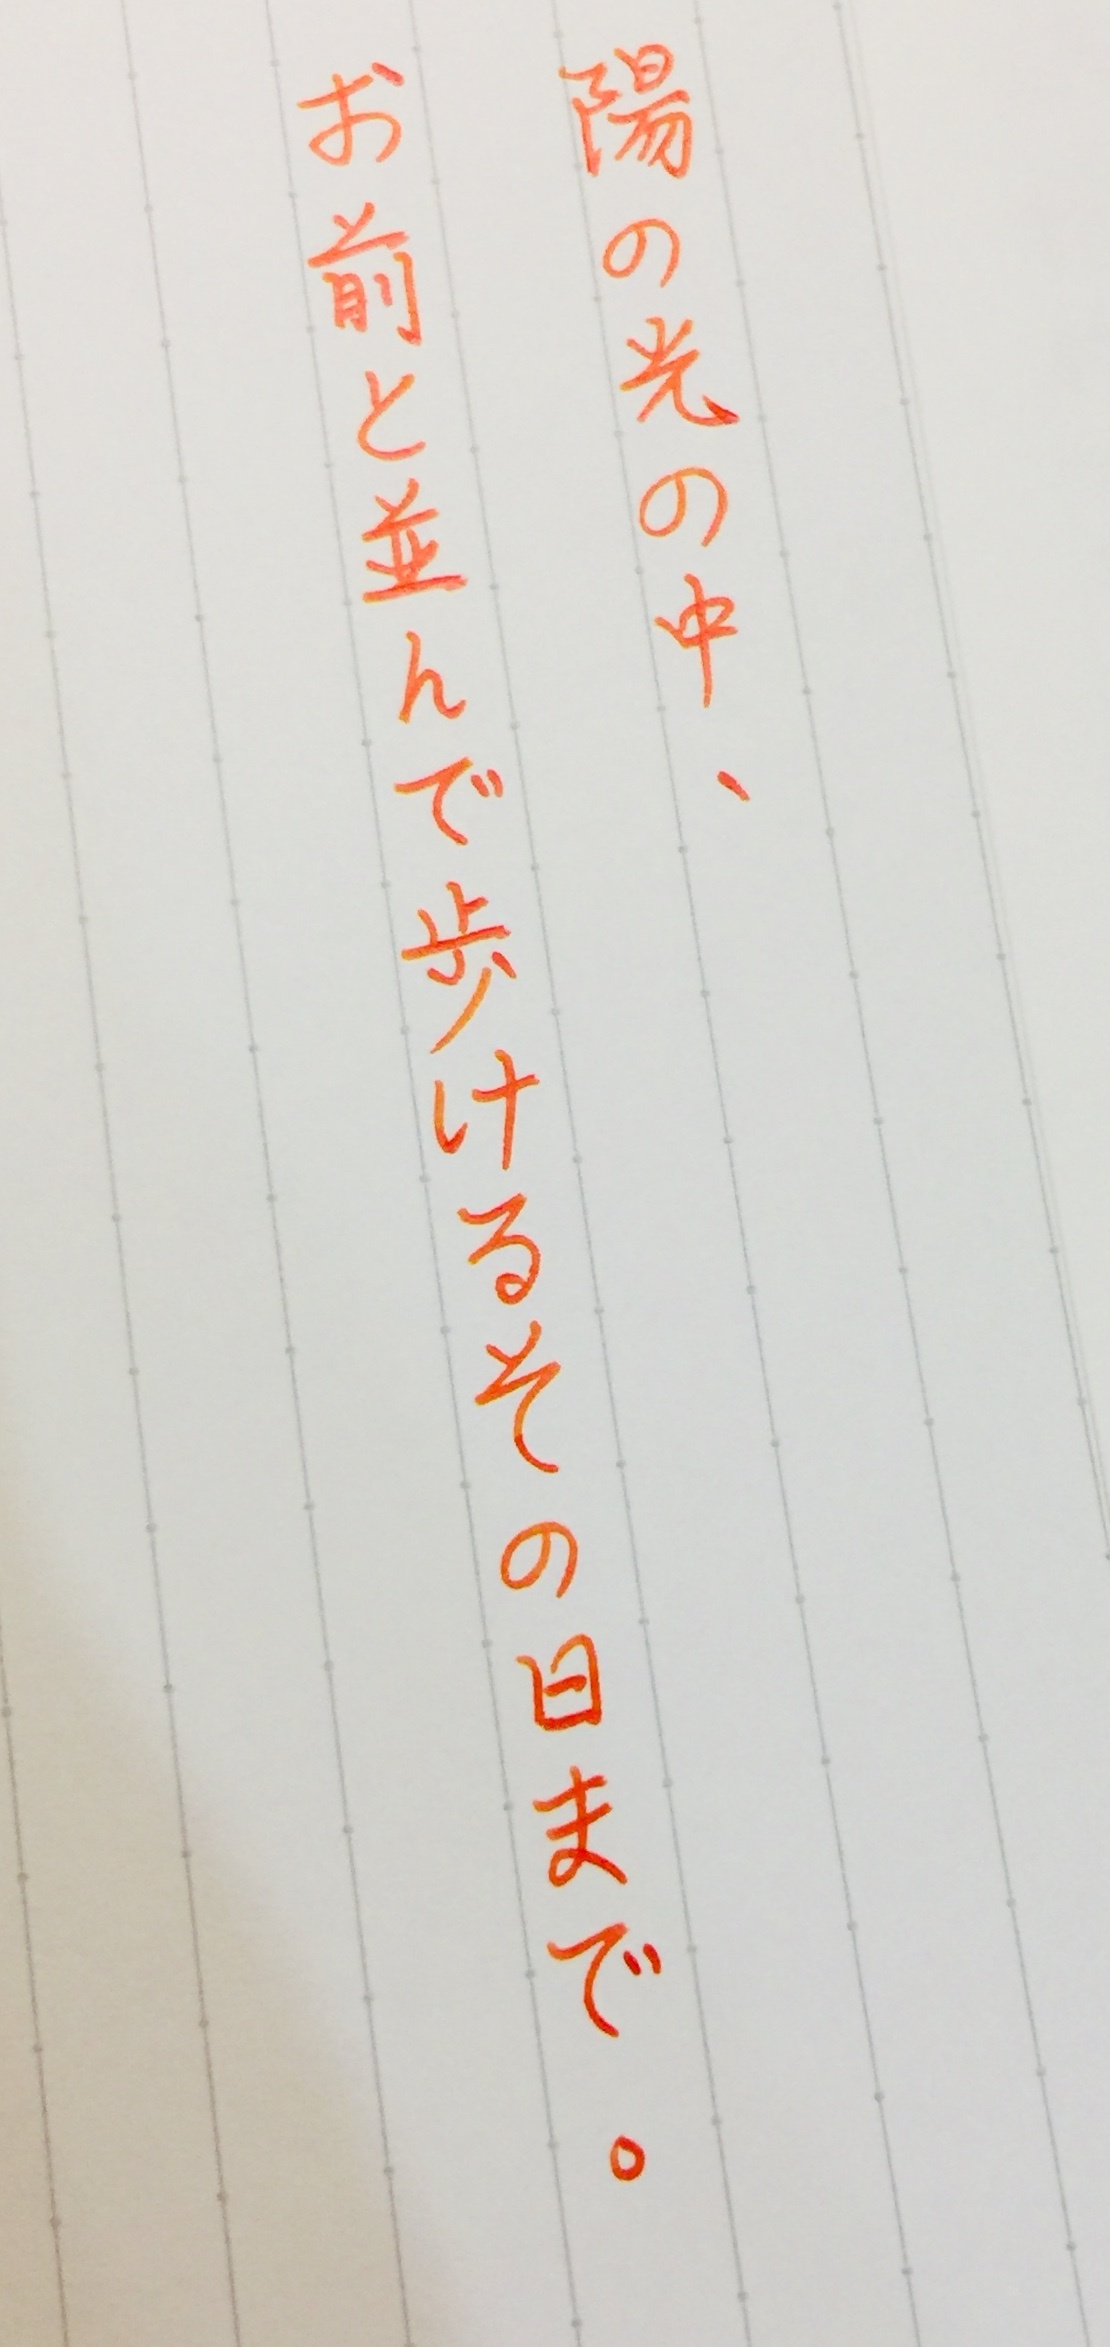 陽の光の中、
お前と並んで歩けるその日まで。